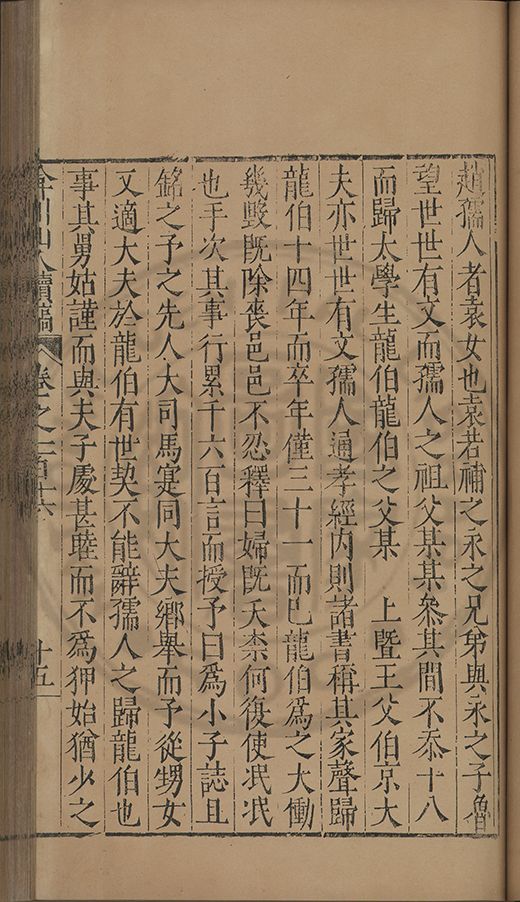 趙孺人者袁女也袁若補之永之兄弟與永之子魯
望世世有文而孺人之祖父某某叅其間不忝十八
而歸太學生龍伯龍伯之父某　上暨王父伯京大
夫亦世世有文孺人通孝經内則諸書稱其家聲歸
龍伯十四年而卒年僅三十一而已龍伯爲之大慟
幾毀旣除喪邑邑不忍釋曰婦旣夭柰何復使泯泯
也手次其事行累千六百言而授予曰爲小子誌且
銘之予之先人大司馬寔同大夫鄉舉而予從甥女
又適大夫於龍伯有世契不能辭孺人之歸龍伯也
事其舅姑謹而與夫子處甚䧺而不爲狎始猶少之
弇州山人續稿　卷之一百十六　十五